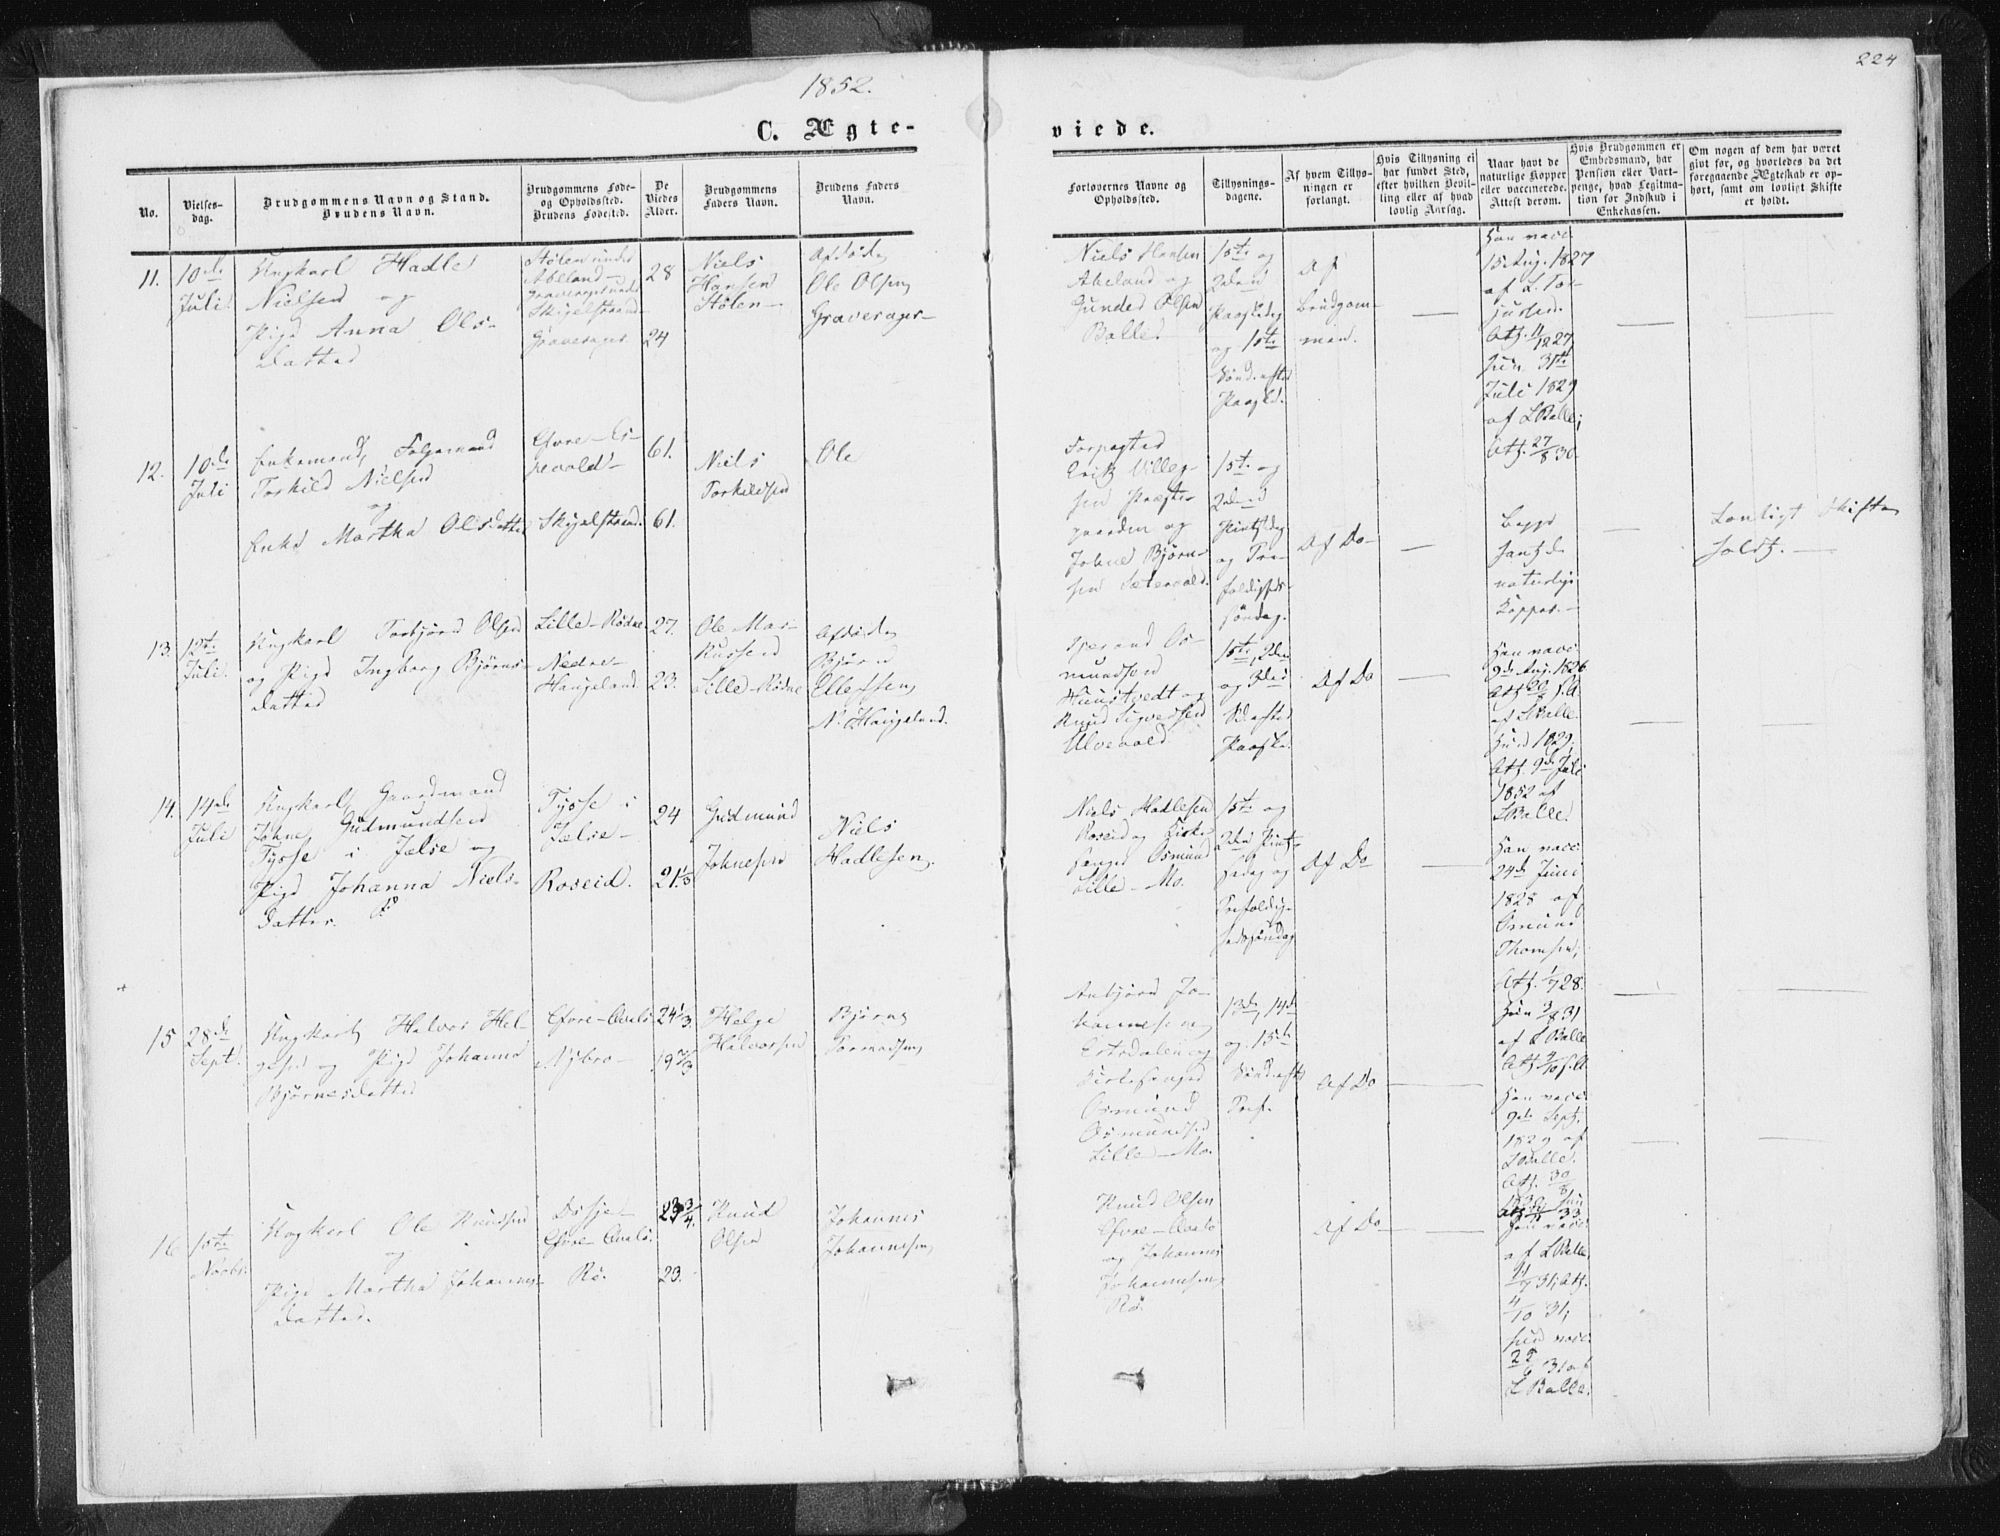 224
1852.
C. Ægte-
viede.
No.
Vielses-
dag.
Brudgommens Navn og Stand.
Brudens Navn.
Brudgommens Føde-
og Opholdssted.
Brudens Fødested.
De
Viedes
Alder.
Brudgommens
Faders Navn.
Brudens Faders
Navn.
Forlovernes Navne og
Opholdssted.
Tillysnings-
dagene.
Af hvem Tillys-
ningen er
forlangt.
Hvis Tillysning ei
har fundet Sted,
efter hvilken Bevil-
ling eller af hvad
lovlig Aarsag.
Naar havt de
naturlige Kopper
eller vaccinerede.
Attest derom.
Hvis Brudgommen er
Embedsmand, har
Pension eller Vart-
penge, hvad Legitma-
tion for Indskud i
Enkekassen.
Om nogen af dem har været
givt før, og hvorledes da det
foregaaende Ægteskab er op-
hørt, samt om lovligt Skifte
er holdt.
11.
10de
Juli
Ungkarl Hadle
Nielsen og
Pige Anna Ols-
datter
Stølen under
Abeland
Skigelstrand
28
24
Niels
Hansen
Stølen
Afdøde
Ole Olsen
Niels Hansen
Abeland og
Gunder Olsen
Balle
1ste og
2den
Paaskedag
og 1ste
Sønd. efter
Paaske
Af
Brudgom-
men.
Han vacc.
15 Aug. 1827
af L.
Att. 11/8 1827
hun 31te
Juli 1829
af L Balle;
Att. 27/8 30
12.
10de
Juli
Enkemand,
Torkild Nielsen
og
Enke Martha Olsdatter
Skigelstrand
61.
61.
Niels
Torkildsen
Ole
Forpagter
Erik Villeg-
sen Præste-
gaarden og
Johne Bjørn-
sen
1ste og
2den
Pintsedag
og Tre-
foldigheds-
søndag.
Af Do
Begge
havt de
naturlige
Kopper.
Lovligt Skifte
holdt.
13.
12te
Juli
Ungkarl Torbjørn Olsen
og Pige Ingborg Bjørns-
datter
Lille-Rødne
Nedre-
Haugeland
27.
23.
Ole Mar-
kussen
Lille-Rødne
Afdøde
Bjørn
Ellefsen
N. Haugeland.
Osmundsen
og
Knud Sigvedsen
Ulvevold
1ste, 2den
og 3die
Sd. efter
Paaske.
Af Do
Han vacc.
9de Aug. 1826
af L Balle.
Hun 1829,
Att. 9de Juli
1852 af
L Balle.
14.
14de
Juli
Ungkarl, Gaardmand
Johne Gudmundsen
Tysse i Jelse og
Pige Johanna Niels-
datter.
Tysse i
Jelse
Roseid.
24
21 1/3
Gudmund
Johnesen
Niels
Hadlesen
Niels Hadlesen
Roseid og Kirke-
sanger Osmund
Lille-Mo.
1ste og
2den Pint-
sedag og
Trefoldig-
hedssøndag
Af Do
Han vacc.
24de Juni
1828 af
Osmund
Thomsen,
Att. 1/7 28.
Hun 3/8 31
af L Balle
15
28de
Sept.
Ungkarl Halvor Hel-
gesen og Pige Johanna
Bjørnesdatter
Nybro
24 1/3
19 2/3
Helge
Halvorsen
Bjørn
Tormodsen
Anbjørn Jo-
hannesen
og
Kirkesanger
Osmund
Osmundsen
Lille-Mo.
13de, 14de
og 15de
Sønd. efter
Tref.
Af Do
Han vacc.
9de Sept.
1829 af
L Balle.
Att. 30/8
16
1ste
Novbr.
Ungkarl Ole Knudsen
og
Pige Martha Johannes-
datter.
Rø.
23 3/4.
23.
Knud
Olsen
Johannes
Johannesen
Knud Olsen
og Johannes
Johannesen
Rø.
Af Do
Han vacc.
af L Balle
31; Att.
4/10 31,
hun vacc.
L Balle.